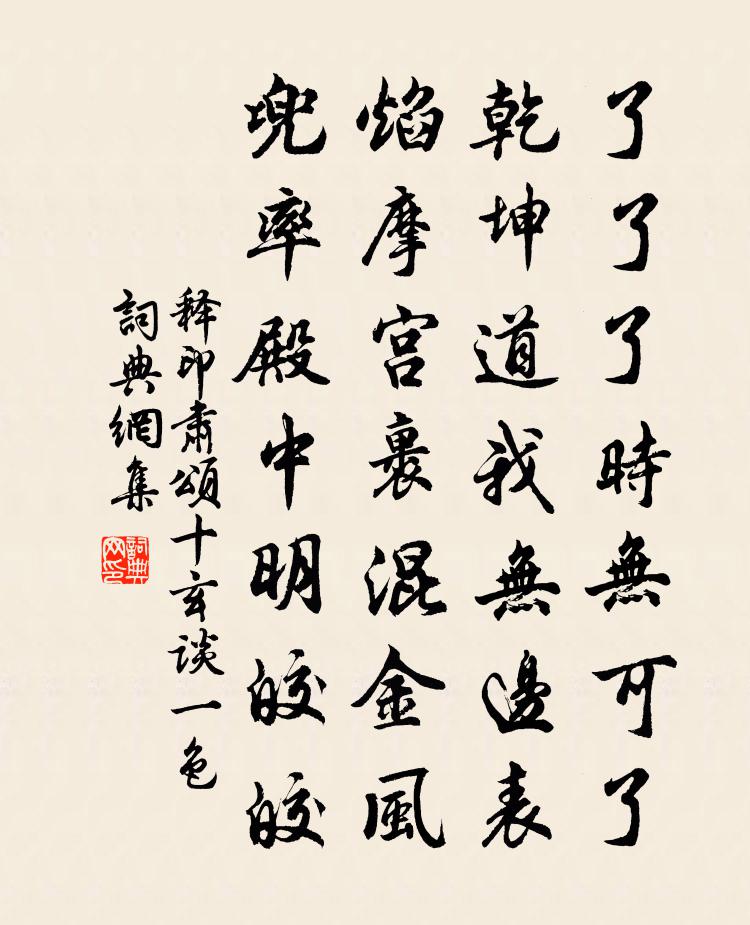 了了了時無可了
乾坤道我無邊表
焰摩宫裏混金風
兜率殿中明皎皎
释印肅頌十玄談一色
詞典網集
詞典网印